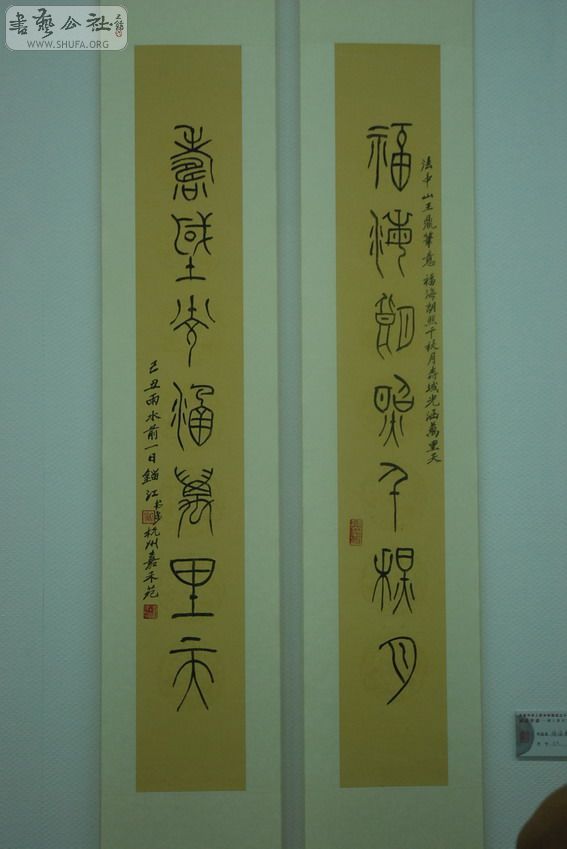 書藝公社
WWW.SHUFA.ORG
法中山王鼎筆意 福海朗照千秋月寿域光涵萬里天
福海朗照千秋月
壽域光涵萬里天
己丑雨水前一日 江书於杭州嘉禾苑